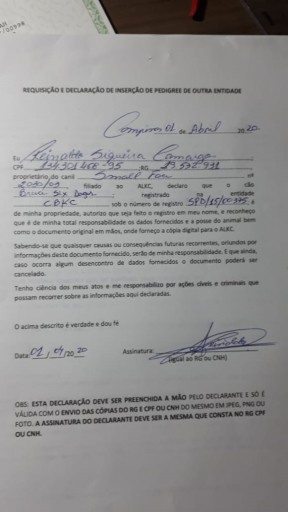 REQUISIÇÃO E DECLARAÇÃO DE INSERÇÃO DE PEDIGREE DE OUTRA ENTIDADE
Campinas 01 de Abril 2020
Eu Reinaldo Siqueira Camargo
CPF
proprietário do canil Small
filiado ao ALKC, declaro que o cão
registrado na entidade
CBKC sob o número de registro é
de minha propriedade, autorizo que seja feito o registro em meu nome, e reconheço
que é de minha total responsabilidade os dados fornecidos e a posse do animal bem
como o documento original em mãos, onde forneço a cópia digital para o ALKC.
Sabendo-se que quaisquer causas ou consequências futuras recorrentes, oriundos por
informações deste documento fornecido, serão de minha responsabilidade. E que ainda,
caso ocorra algum desencontro de dados fornecidos o documento poderá ser
cancelado.
Tenho ciência dos meus atos e me responsabilizo por ações cíveis e criminais que
possam recorrer sobre as informações aqui declaradas.
O acima descrito é verdade e dou fé
Data: 01/04/2020 Assinatura:
(igual ao RG ou CNH)
OBS: ESTA DECLARAÇÃO DEVE SER PREENCHIDA A MÃO PELO DECLARANTE E SÓ É
VÁLIDA COM O ENVIO DAS CÓPIAS DO RG E CPF OU CNH DO MESMO EM JPEG, PNG OU
FOTO. A ASSINATURA DO DECLARANTE DEVE SER A MESMA QUE CONSTA NO RG CPF
OU CNH.